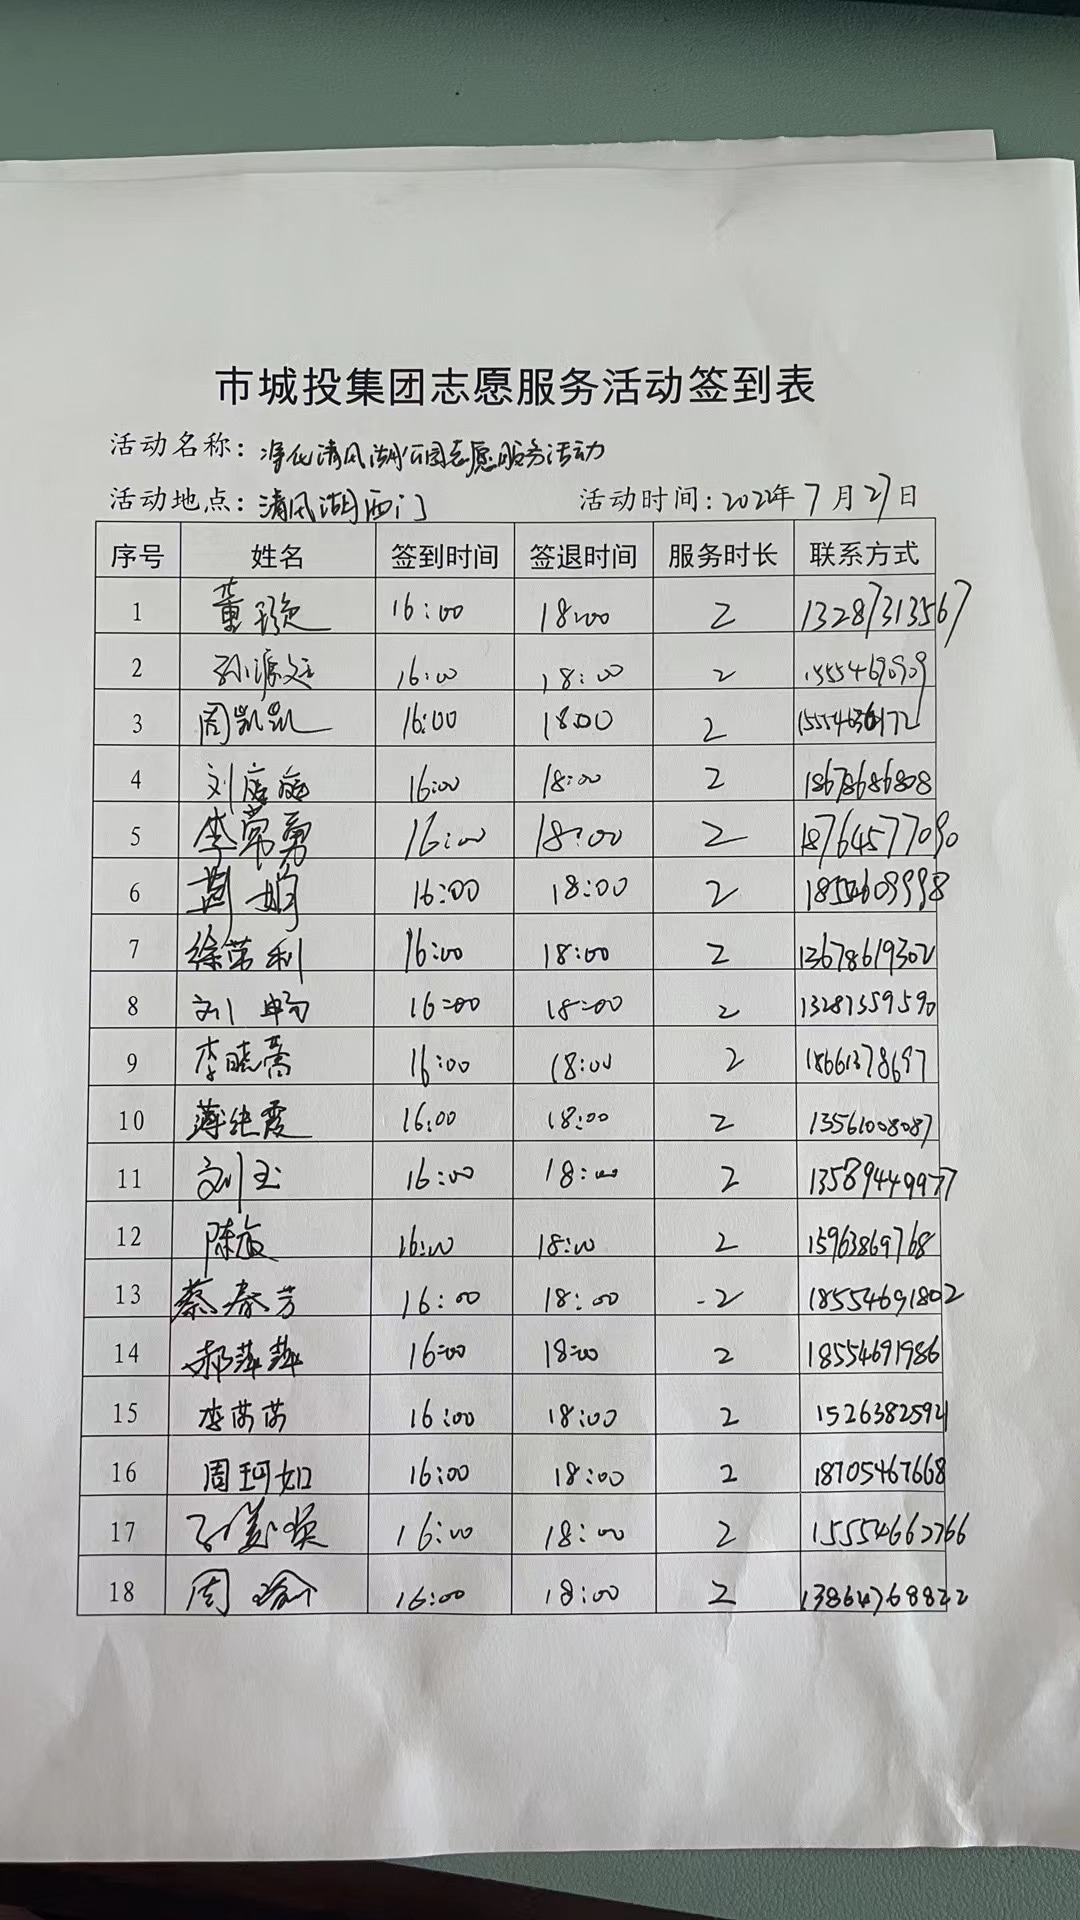 市城投集团志愿服务活动签到表
活动名称：净化清风湖公园志愿服务活动
活动地点：清风湖西门 活动时间：2022年7月27日
序号 姓名 签到时间 签退时间 服务时长 联系方式
1 董 16:00 18:00 2 13287313567
2 孙 16:00 18:00 2 15554690909
3 周凯凯 16:00 18:00 2 15554636172
4 刘 16:00 18:00 2 18678686808
5 李常勇 16:00 18:00 2 18764577090
6 荆娟 16:00 18:00 2 18554609998
7 徐常利 16:00 18:00 2 13678619302
8 刘畅 16:00 18:00 2 13287359590
9 李晓 16:00 18:00 2 18661378697
10 薄继霞 16:00 18:00 2 13561008087
11 刘玉 16:00 18:00 2 13589449977
12 陈 16:00 18:00 2 15963869768
13 蔡春芳 16:00 18:00 2 18554691802
14 郝萍萍 16:00 18:00 2 18554691986
15 李芮芮 16:00 18:00 2 15263825921
16 周珂如 16:00 18:00 2 18705467668
17 16:00 18:00 2 15554662766
18 周瑜 16:00 18:00 2 13864768822